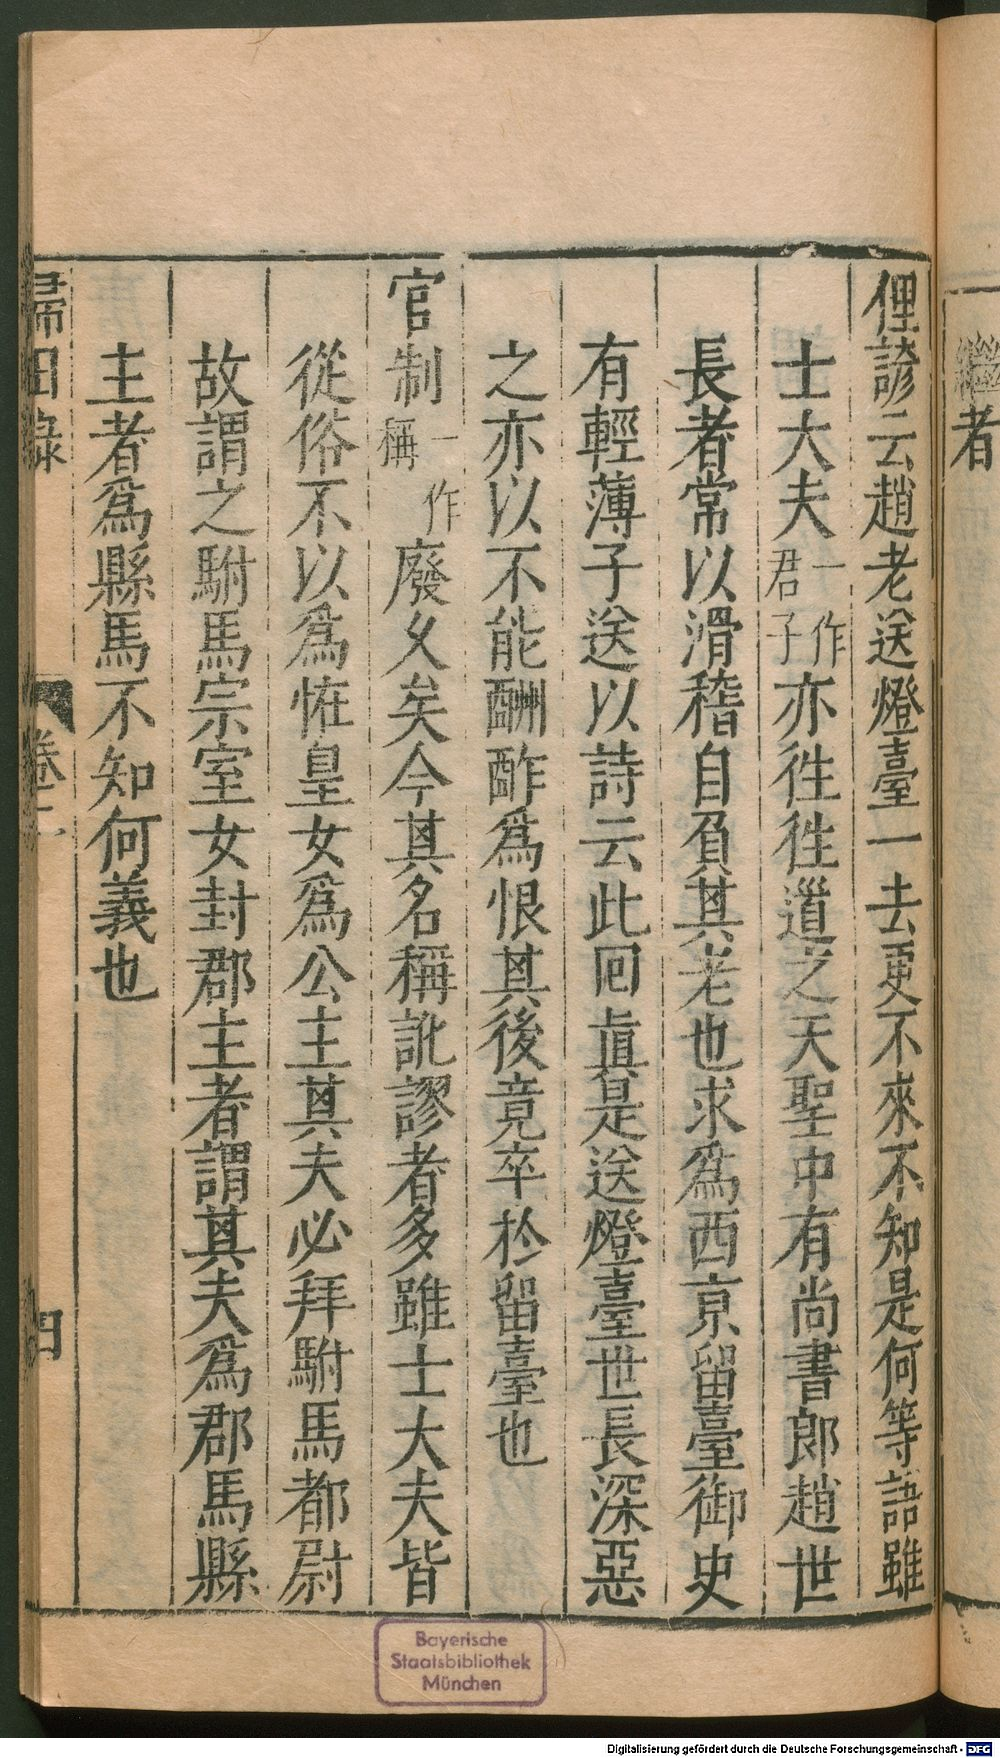 繼者
俚諺云趙老送燈臺一去更不來不知是何等語雖
士大夫一作君子亦徃徃道之天聖中有尚書郎趙世
長者常以滑稽自負其老也求爲西京留臺御史
有輕薄子送以詩云此回眞是送燈臺世長深惡
之亦以不能酬酢爲恨其後竟卒於留臺也
官制一作稱廢久矣今其名稱訛謬者多雖士大夫皆
從俗不以爲恠皇女爲公主其夫必拜駙馬都尉
故謂之駙馬宗室女封郡主者謂其夫爲郡馬縣
主者爲縣馬不知何義也
歸田錄 卷二 四
Bayerische
Staatsbibliothek
München
Digitalisierung gefördert durch die Deutsche Forschungsgemeinschaft - DFG